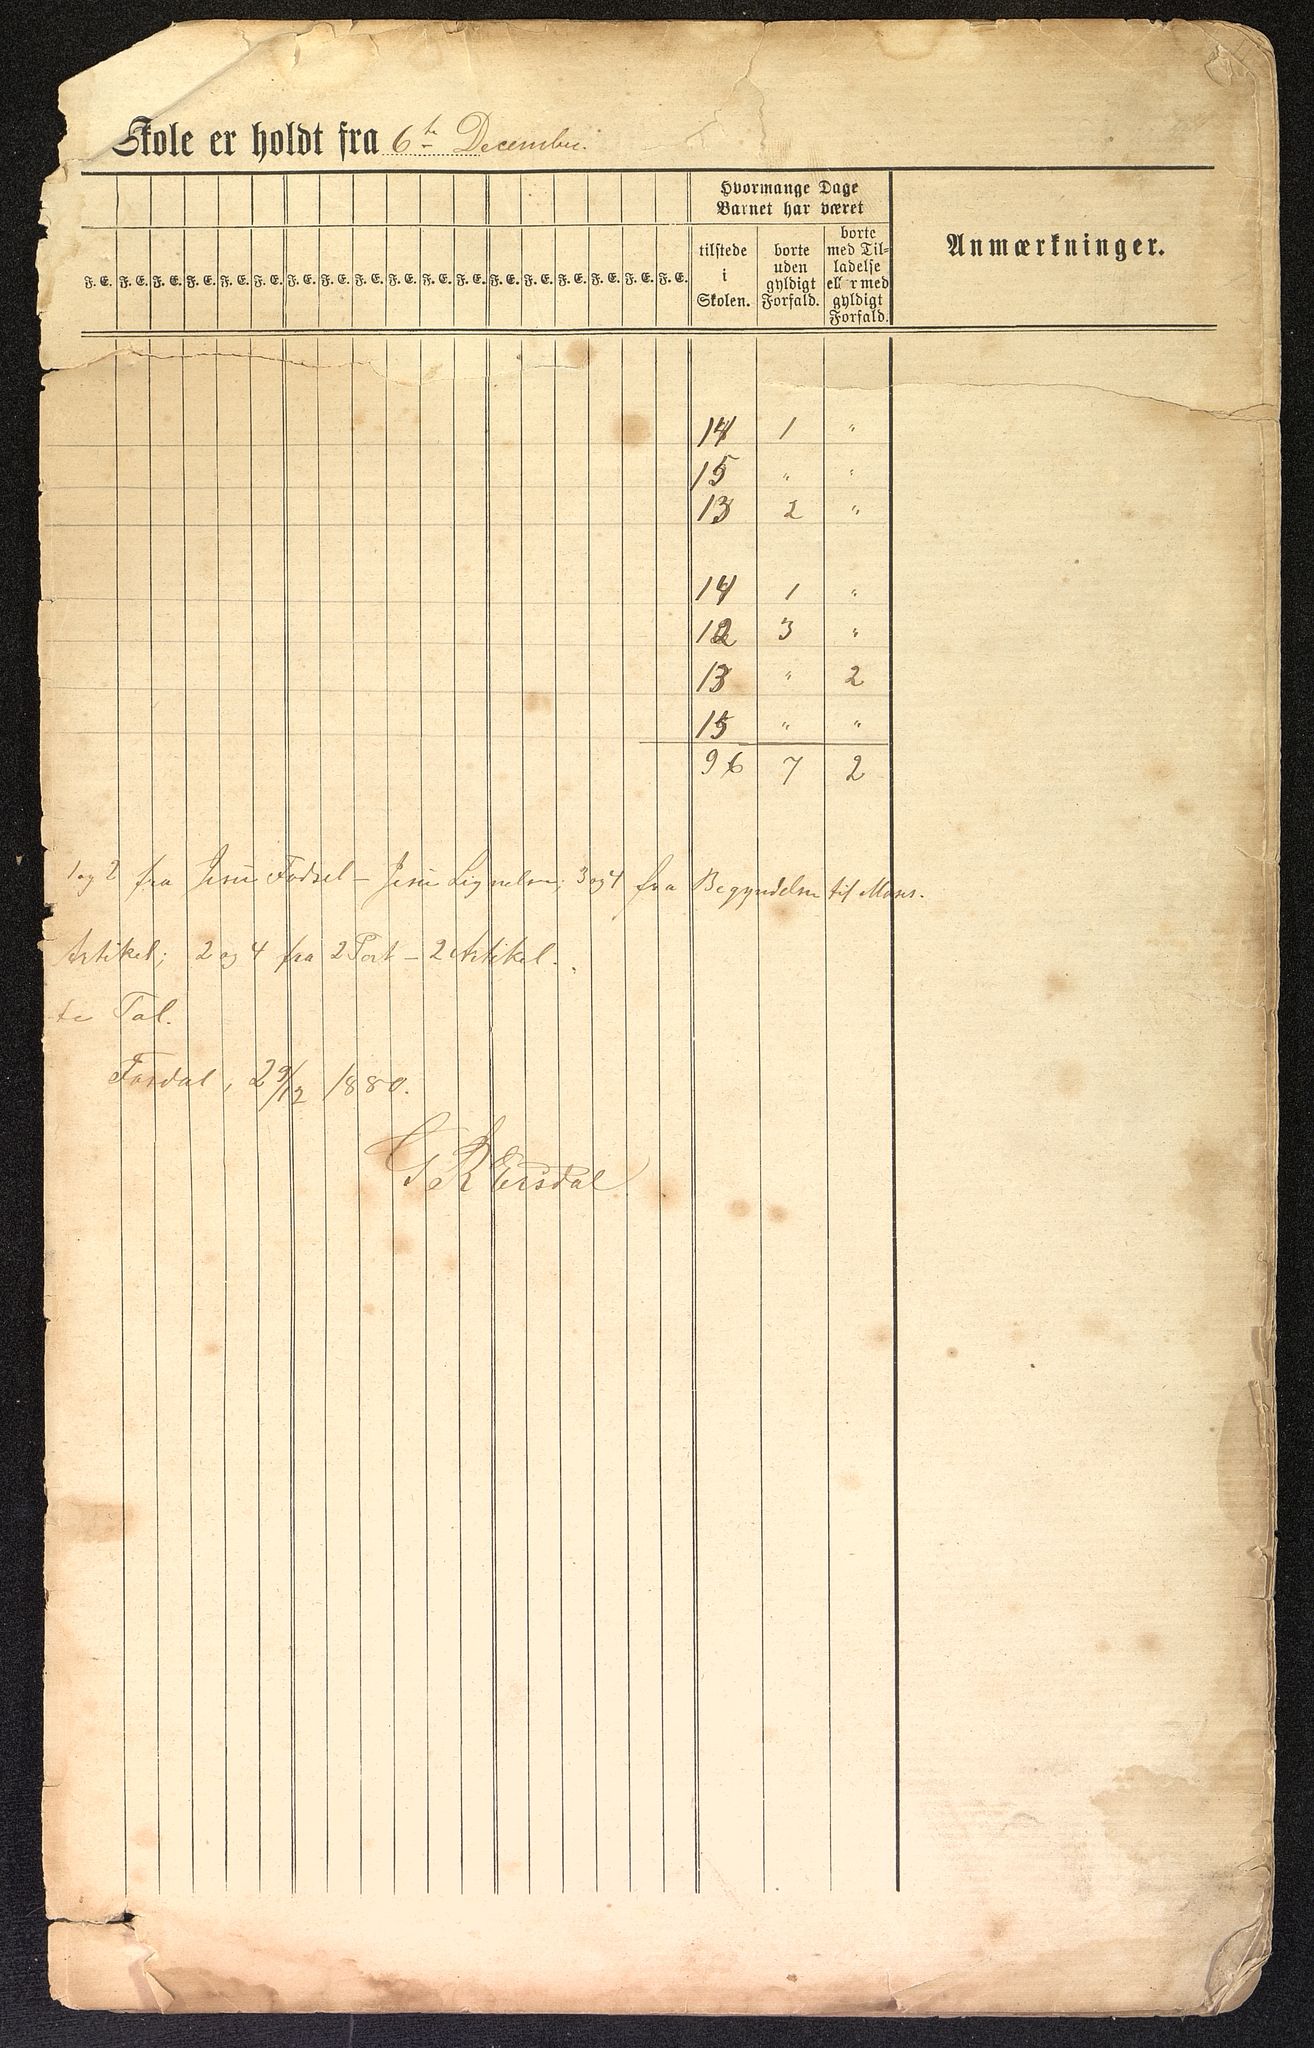 Skole er holdt fra 6te December.
Hvormange Dage
Barnet har været
Anmærkninger.
F. E. F. E. F. E. F. E. F. E. F. E. F. E. F. E. F. E. F. E. F. E. F. E. F. E. F. E. F. E. F. E. F. E. F. E.
tilstede
i
Skolen.
borte
uden
gyldigt
Forfald.
borte
med Til-
ladelse
eller med
gyldigt
Forfald.
14 1 "
15 " "
13 2 "
14 1 "
12 3 "
13 " 2
15 " "
96 7 2
1 og 2 fra Jesu Fødsel – Jesu Lignelser; 3 og 4 fra Begyndelsen til Moses.
Artikel; 2 og 4 fra 2 Part – 2 Artikel.
te Tal.
29/12 1880.